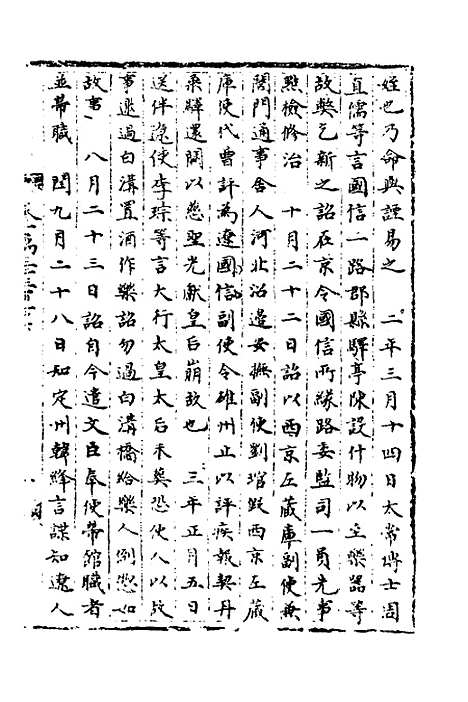 姪也乃命與諲易之　二年三月十四日太常博士周
直儒等言國信一路郡縣驛亭陳設什物以至樂器等
故弊乞新之詔在京令國信所緣路委監司一員先事
點檢修治　十月二十二日詔以西京左藏庫副使兼
閤門通事舍人河北沿邊安撫副使劉琯假西京左藏
庫使代曹評為遼國信副使令雄州止以評疾報契丹
乘驛還闕以慈聖光獻皇后崩故也　三年正月五日
送伴遼使李琮等言大行太皇太后未葬恐使人以故
事邀過白溝置酒作樂詔勿過白溝橋給樂人例物如
故事　八月二十三日詔自今遣文臣奉使帶館職者
並帶職　閏九月二十八日知定州韓絳言諜知遼人